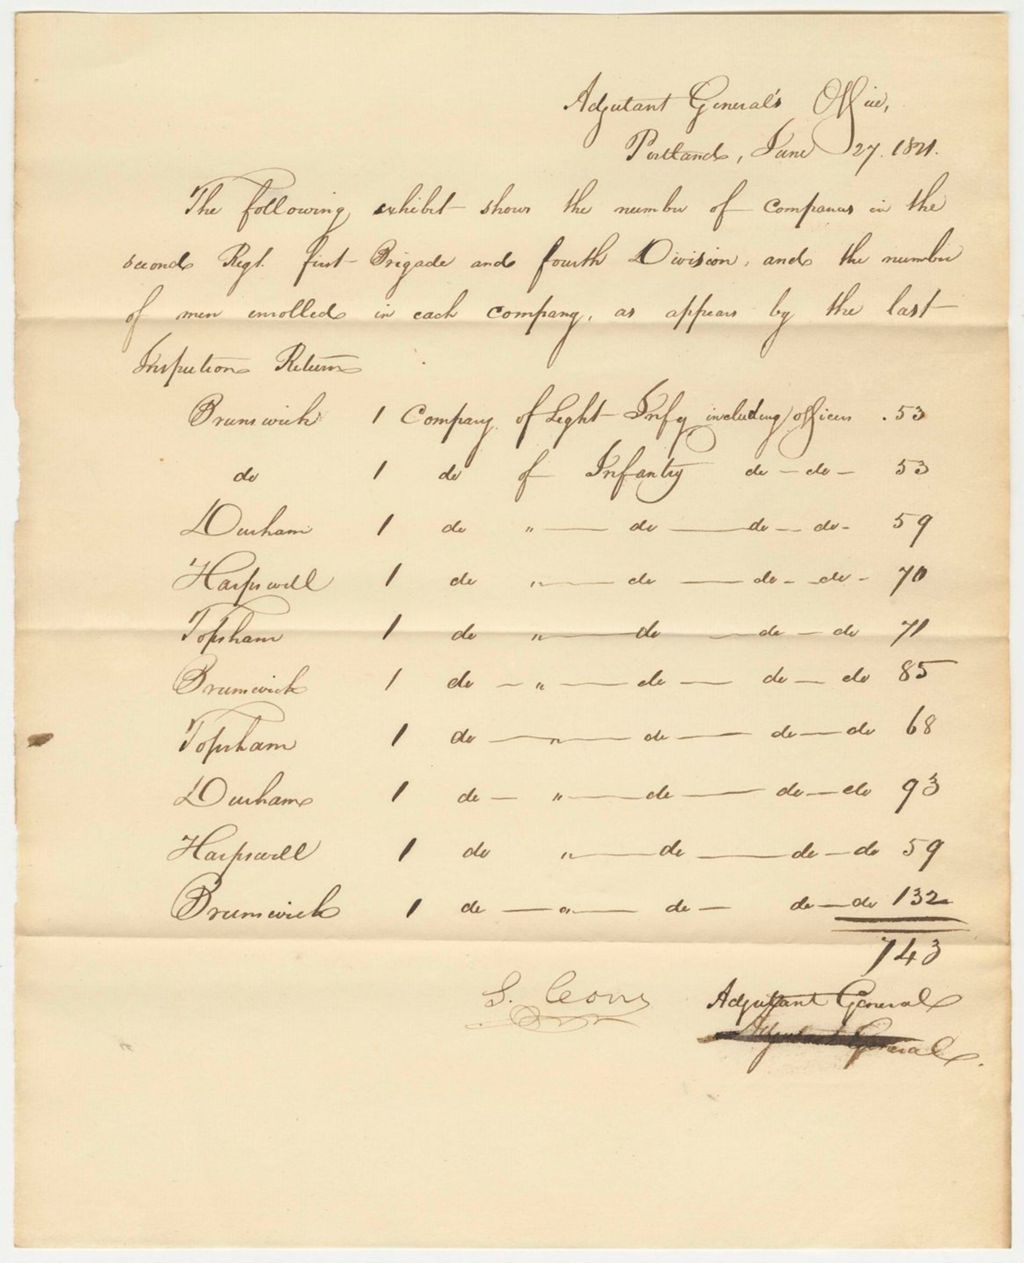 Adjutant General's Office,
Portland, June 27. 1821.
The following exhibit shows the number of companies in the
second Regt. first Brigade and fourth Division, and the number
of men enrolled in each company, as appears by the last
Inspection Return
Brunswick 1 Company of Light Infy including officers . 53
do 1 do of Infantry do - do - 53
Durham 1 do " — do — do - do - 59
Harpswell 1 do " — do — do - do - 70
Topsham 1 do " — do — do - do 71
Brunswick 1 do - " — do — do - do 85
Topsham 1 do — " — do — do - do 68
Durham 1 do - " — do — do - do 93
Harpswell 1 do " — do — do - do 59
Brunswick 1 do — " — do — do - do 132
743
S. Cony Adjutant General
Adjutant General.